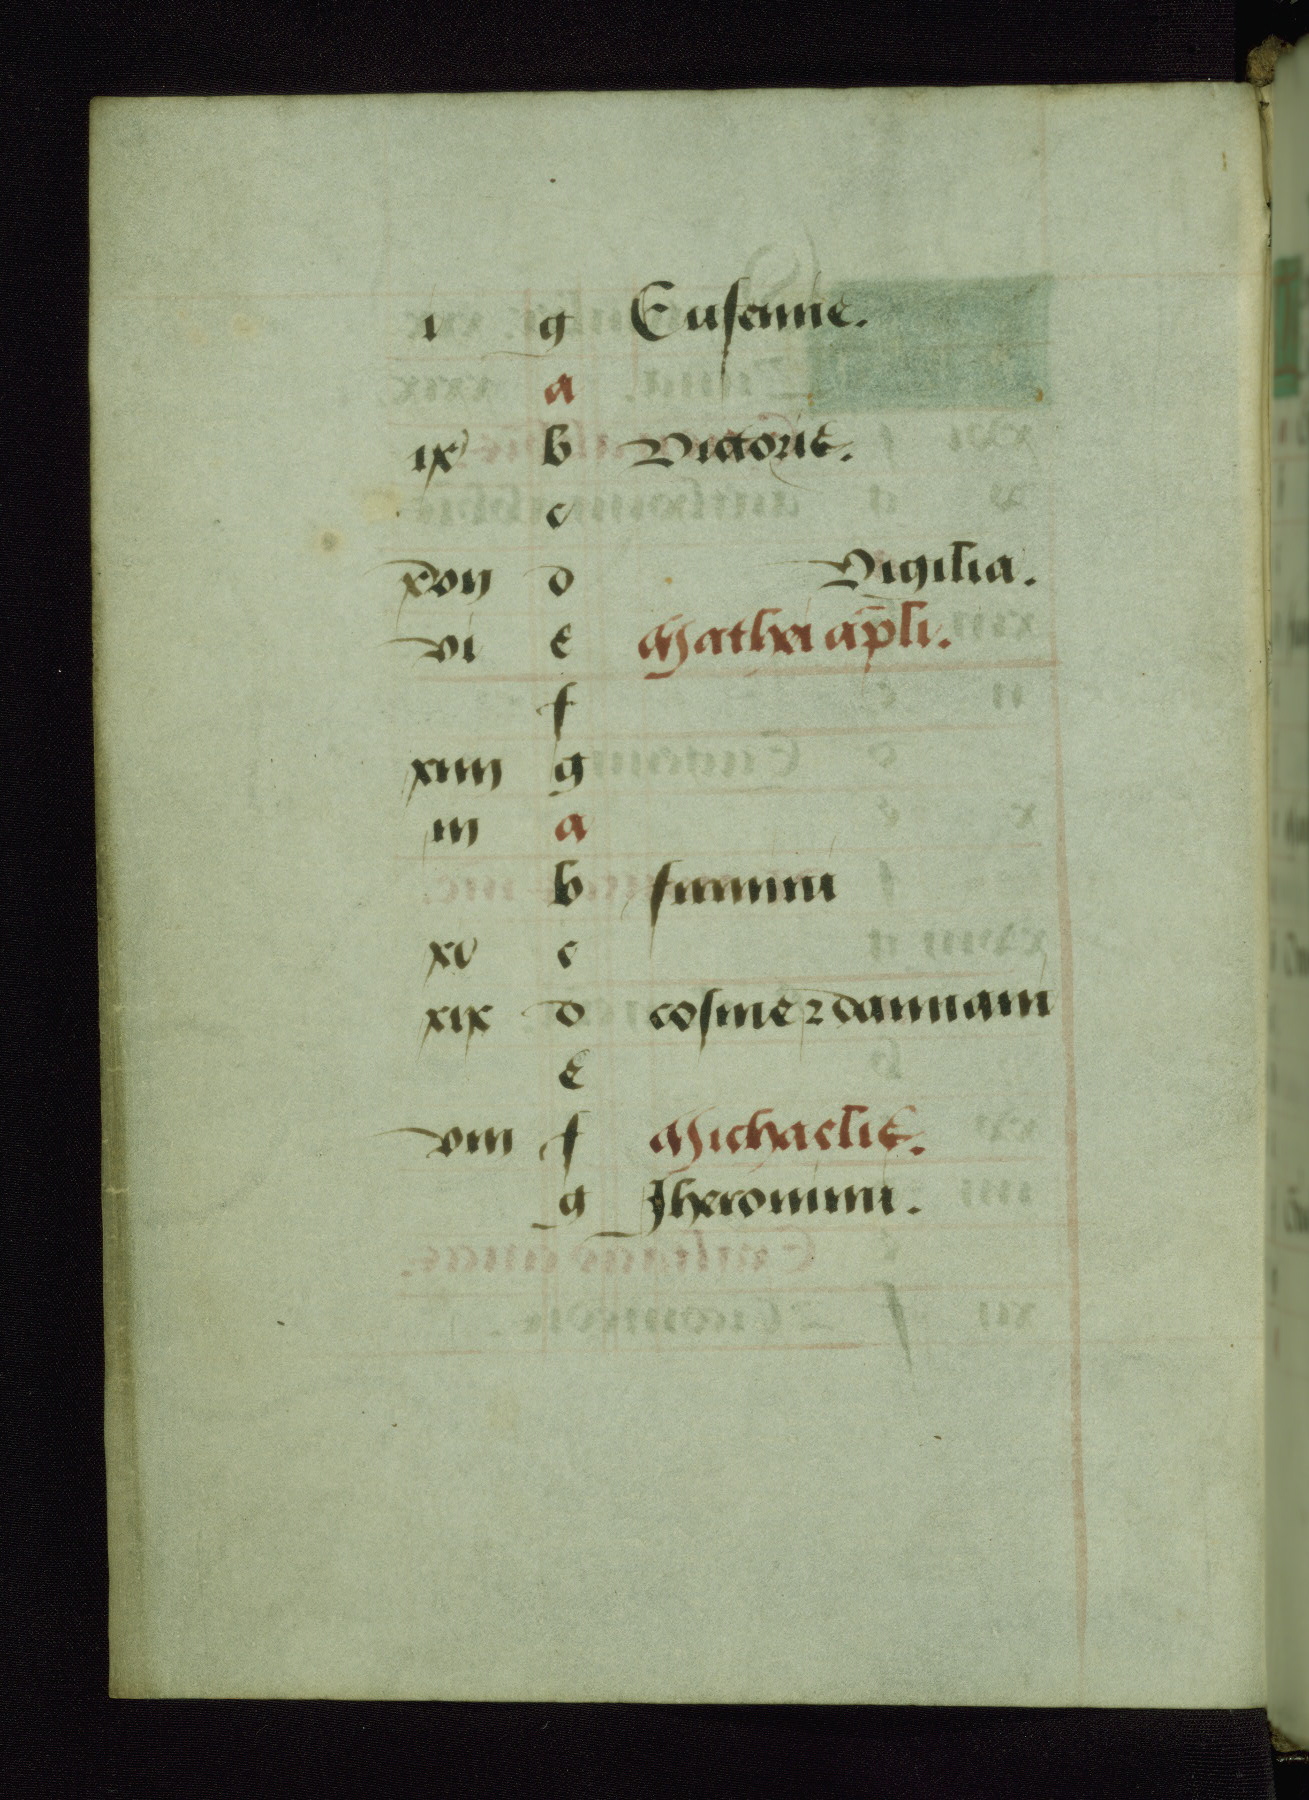 i g Eufemie.
a
ix b Victorie.
c
xvij d Vigilia.
vi e Mathei apli.
f
xiiij g
iij a
b firmini
xi c
xix d cosme 2 damiani
e
viij f Michaelis.
g Jheronimi.